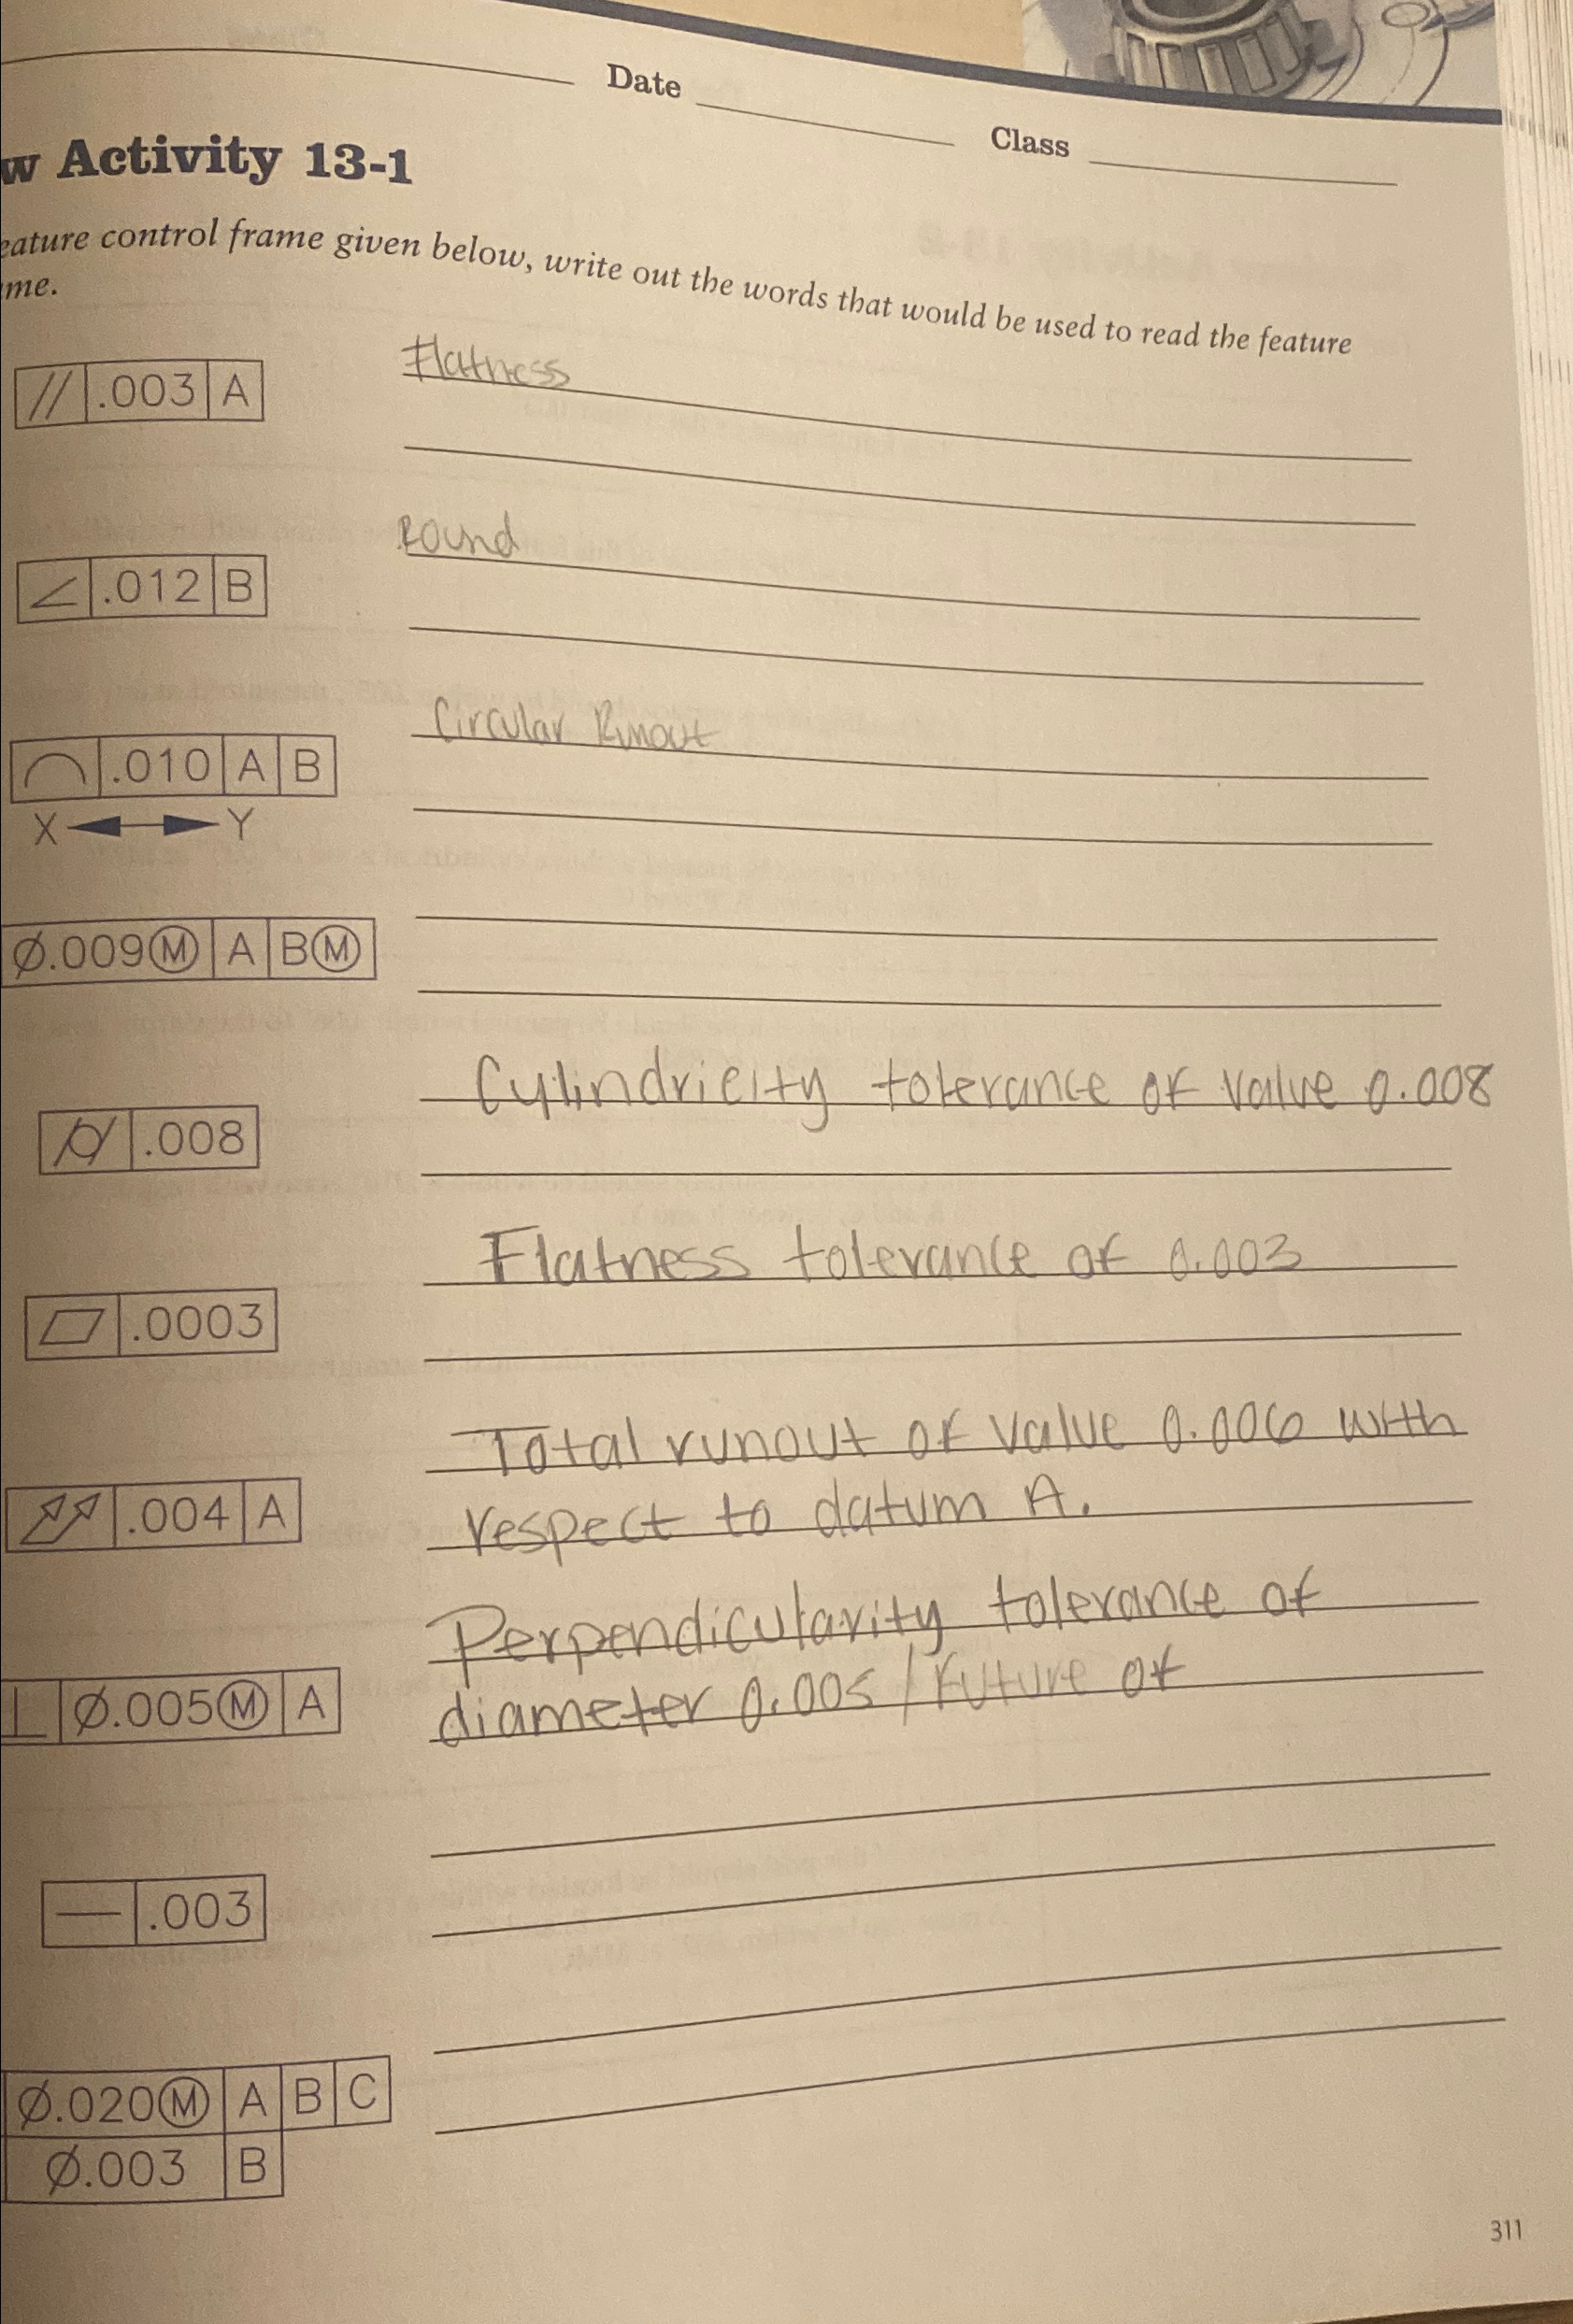 Date
Class
w Activity 13-1
eature control frame given below, write out the words that would be used to read the feature
me.
// .003 A
Flatness
Round
∠ .012 B
Circular Runout
⌒ .010 A B
X ↔ Y
Ø.009Ⓜ A BⓂ
Cylindricity tolerance of value 0.008
⌭ .008
Flatness tolerance of 0.003
⏥ .0003
Total runout of value 0.006 with
respect to datum A.
⌰ .004 A
Perpendicularity tolerance of
diameter 0.005 / Future of
⊥ Ø.005Ⓜ A
— .003
Ø.020Ⓜ A B C
Ø.003 B
311